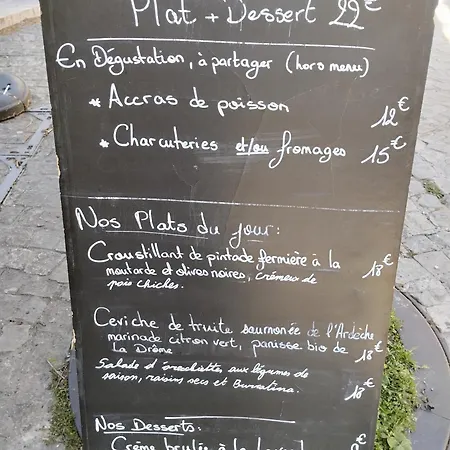 Plat + Dessert 22€
En Dégustation, à partager (hors menu)
* Accras de poisson 12€
* Charcuteries et/ou fromages 15€
Nos Plats du jour:
Croustillant de pintade fermière à la
moutarde et olives noires, crémeux de 18€
pois chiches.
Ceviche de truite saumonée de l'Ardèche
marinade citron vert, panisse bio de 18€
La Drôme
Salade d'orechiettes aux légumes de
saison, raisins secs et Burratina. 18€
Nos Desserts:
Crème brulée à la